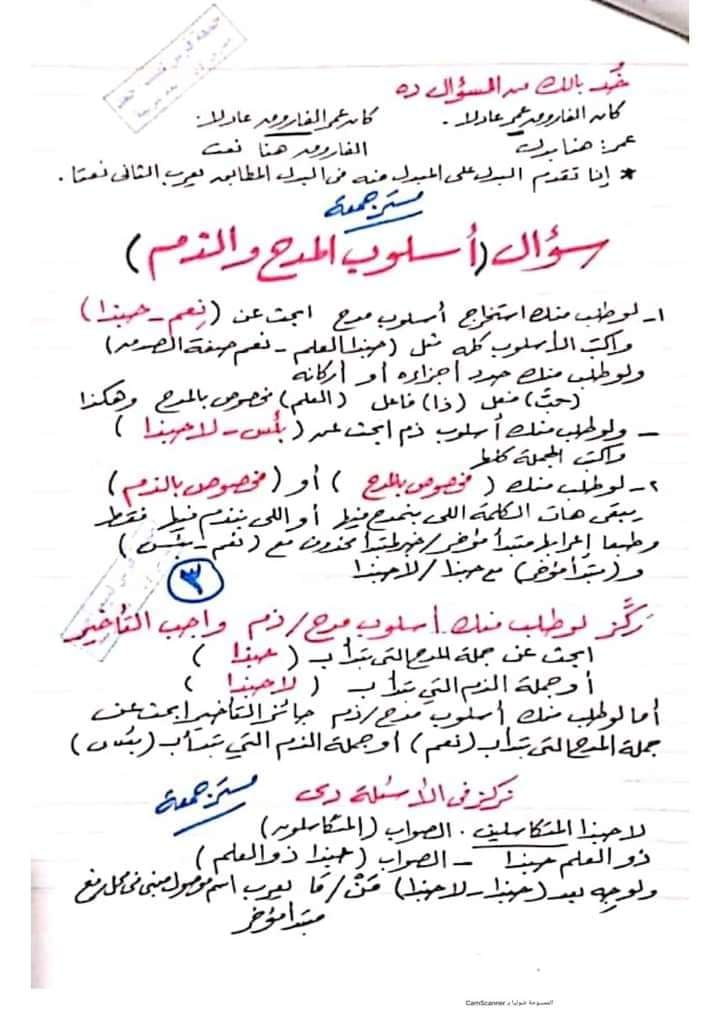 خُد بالك من السؤال ده
كان الفاروق عمر عادلا. كان عمر الفاروق عادلا.
عمر: هنا بدل الفاروق هنا نعت
* إذا تقدم البدل على المبدل منه فى البدل المطابق يعرب الثانى نعتا.
مستر جمعة
سؤال (أسلوب المدح والذم)
١- لو طلب منك استخراج أسلوب مدح ابحث عن (نِعم - حبذا)
واكتب الأسلوب كله مثل (حبذا العلم - نعم صفة الصدق)
ولو طلب منك حدد أجزاءه أو أركانه
(حبَّ) فعل (ذا) فاعل (العلم) مخصوص بالمدح وهكذا
- ولو طلب منك أسلوب ذم ابحث عن (بئس - لا حبذا)
واكتب الجملة كلها
٢- لو طلب منك (مخصوص بالمدح) أو (مخصوص بالذم)
يبقى هات الكلمة اللى بنمدح فيها أو اللى بنذم فيها فقط
وطبعا إعرابها مبتدأ مؤخر/خبر لمبتدأ محذوف مع (نعم - بئس)
و(مبتدأ مؤخر) مع حبذا/لا حبذا
٣
ركَّز لو طلب منك أسلوب مدح/ذم واجب التأخير
ابحث عن جملة المدح التى تبدأ بـ (حبذا)
أو جملة الذم التي تبدأ بـ (لا حبذا)
أما لو طلب منك أسلوب مدح/ذم جائز التأخير ابحث عن
جملة المدح التى تبدأ بـ (نعم) أو جملة الذم التي تبدأ بـ (بئس)
نركز فى الأسئلة دى
مستر جمعة
لا حبذا المتكاسلين. الصواب (المتكاسلون)
ذو العلم حبذا - الصواب (حبذا ذو العلم)
ولو جه بعد (حبذا - لا حبذا) مَنْ/مَا يعرب اسم موصول مبنى فى محل رفع
مبتدأ مؤخر
الممسوحة ضوئيا بـ CamScanner